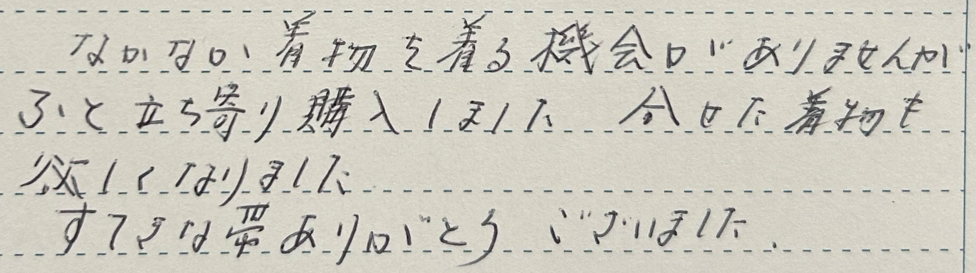 なかなか着物を着る機会がありませんが
ふと立ち寄り購入しました 合せた着物も
欲しくなりました
すてきな帯ありがとうございました.